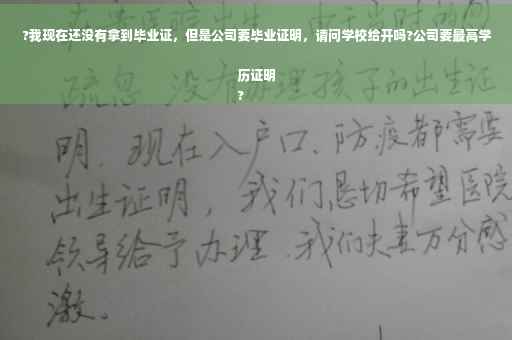 ?我现在还没有拿到毕业证，但是公司要毕业证明，请问学校给开吗?公司要最高学
历证明
?
疏忽，没有办理孩子的出生证
明．现在入户口、防疫都需要
出生证明，我们恳切希望医院
领导给予办理．我们夫妻万分感
激。